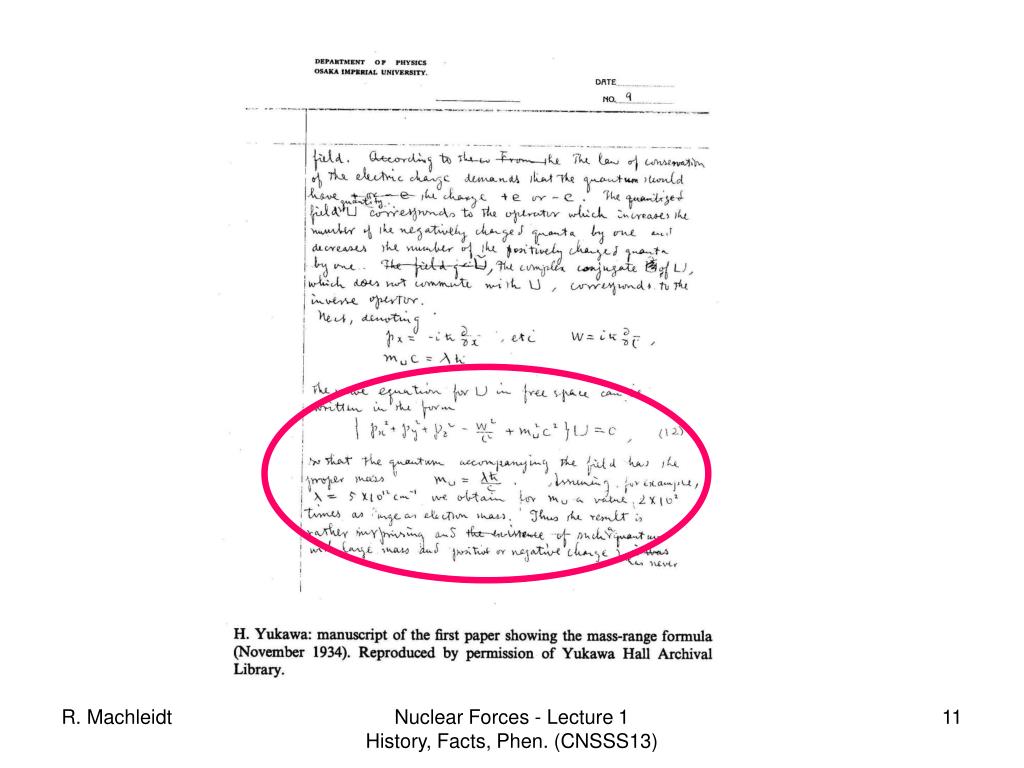 DEPARTMENT OF PHYSICS
OSAKA IMPERIAL UNIVERSITY.
DATE
NO. 9
field. According to the From the The law of conservation
of the electric charge demands that the quantum should
have + or - e the charge +e or -e. The quantized
quantity
field U corresponds to the operator which increases the
number of the negatively charged quanta by one and
decreases the number of the positively charged quanta
by one. The field Ũ, the complex conjugate of U,
which does not commute with U, corresponds to the
inverse opertor.
Next, denoting
px = -iħ ∂/∂x, etc W = iħ ∂/∂t,
mUc = λħ
The wave equation for U in free space can be
written in the form
{ px² + py² + pz² - W²/c² + mU²c² } U = 0, (12)
so that the quantum accompanying the field has the
proper mass mU = λħ/c. Assuming, for example,
λ = 5 X 10¹² cm⁻¹ we obtain for mU a value 2 X 10²
times as large as electron mass. Thus the result is
rather surprising and the existence of such quantum
with large mass and positive or negative charge was
has never
H. Yukawa: manuscript of the first paper showing the mass-range formula
(November 1934). Reproduced by permission of Yukawa Hall Archival
Library.
R. Machleidt
Nuclear Forces - Lecture 1
History, Facts, Phen. (CNSSS13)
11